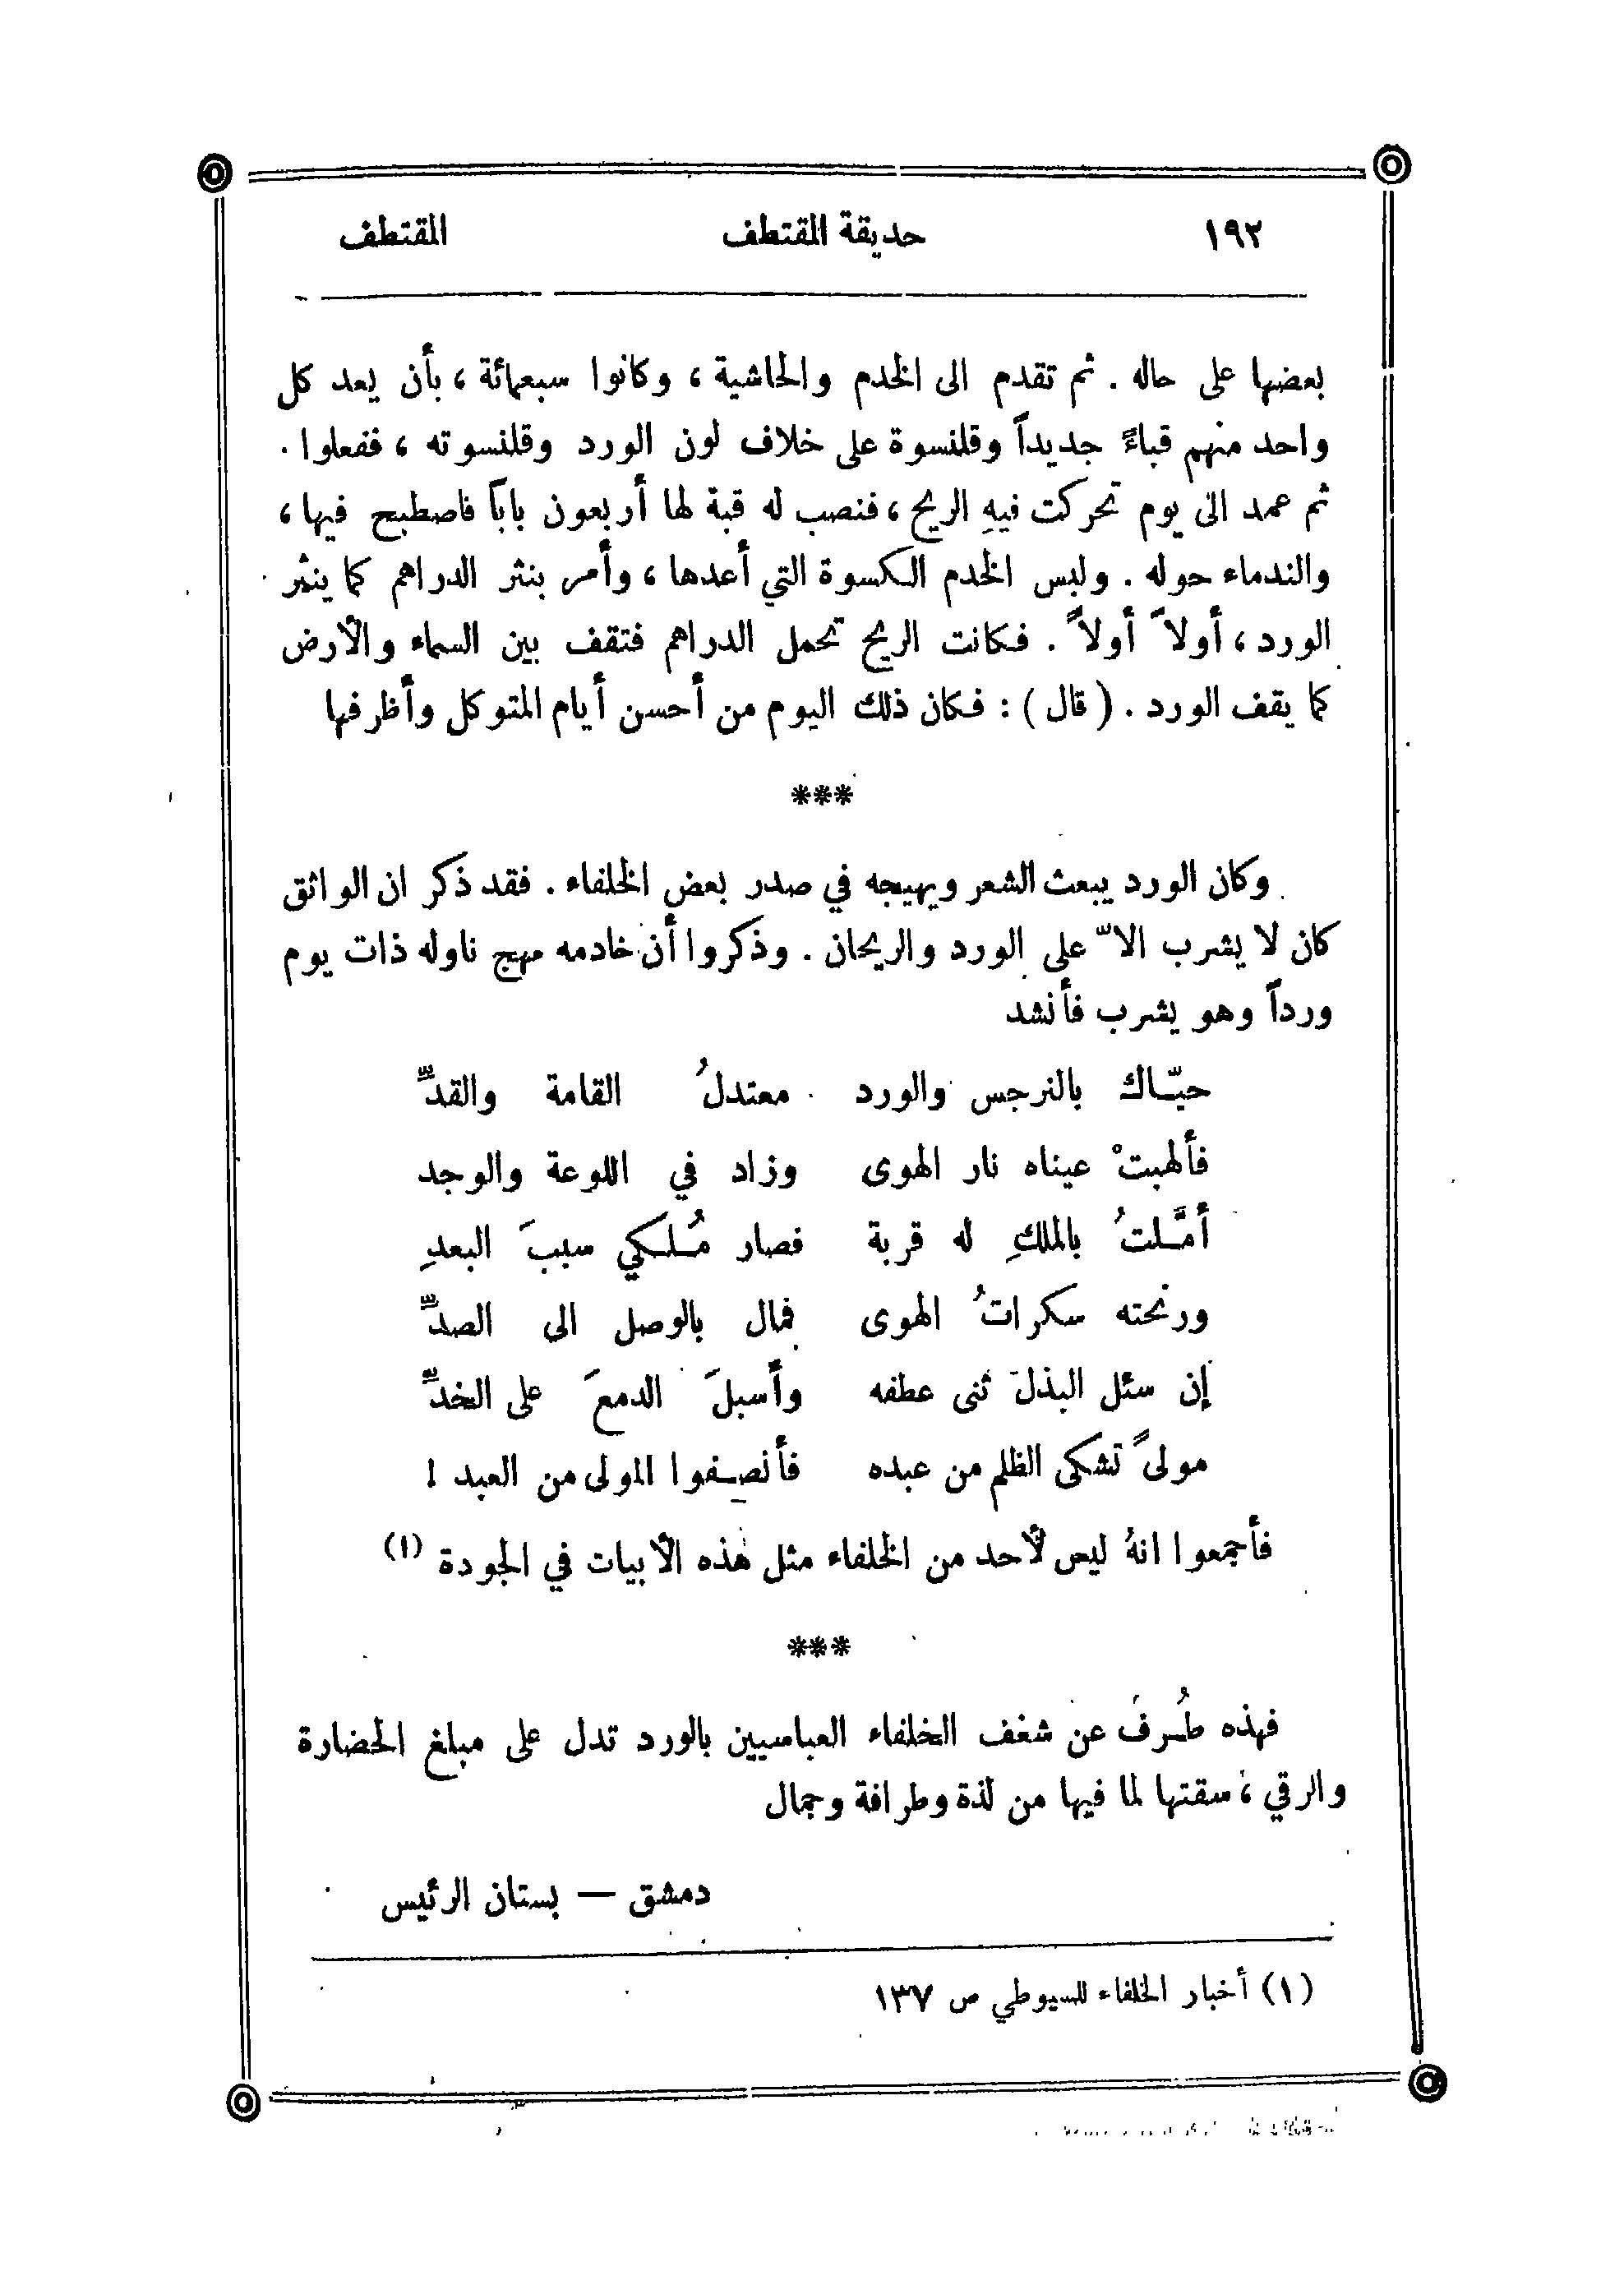 ١٩٢ حديقة المقتطف المقتطف
بعضها على حاله . ثم تقدم الى الخدم والحاشية ، وكانوا سبعمائة ، بأن يعد كل
واحد منهم قباءً جديداً وقلنسوة على خلاف لون الورد وقلنسوته ، ففعلوا .
ثم عمد الى يوم تحركت فيهِ الريح ، فنصب له قبة لها أربعون باباً فاصطبح فيها ،
والندماء حوله . ولبس الخدم الكسوة التي أعدها ، وأمر بنثر الدراهم كما ينثر
الورد ، أولاً أولاً . فكانت الريح تحمل الدراهم فتقف بين السماء والأرض
كما يقف الورد . ( قال ) : فكان ذلك اليوم من أحسن أيام المتوكل وأظرفها
***
وكان الورد يبعث الشعر ويهيجه في صدر بعض الخلفاء . فقد ذكر ان الواثق
كان لا يشرب الاّ على الورد والريحان . وذكروا أن خادمه مهج ناوله ذات يوم
ورداً وهو يشرب فأنشد
حيّاك بالنرجس والورد معتدلُ القامة والقدِّ
فألهبتْ عيناه نار الهوى وزاد في اللوعة والوجد
أمَّلتُ بالملكِ له قربة فصار مُلكي سببَ البعدِ
ورنحته سكراتُ الهوى فمال بالوصل الى الصدِّ
إن سئل البذلَ ثنى عطفه وأسبلَ الدمعَ على الخدِّ
مولىً تشكى الظلم من عبده فأنصفوا المولى من العبد !
فأجمعوا انهُ ليس لأحد من الخلفاء مثل هذه الأبيات في الجودة (١)
***
فهذه طُرفَ عن شغف الخلفاء العباسيين بالورد تدل على مبلغ الحضارة
والرقي ، سقتها لما فيها من لذة وطرافة وجمال
دمشق — بستان الرئيس
(١) أخبار الخلفاء للسيوطي ص ١٣٧